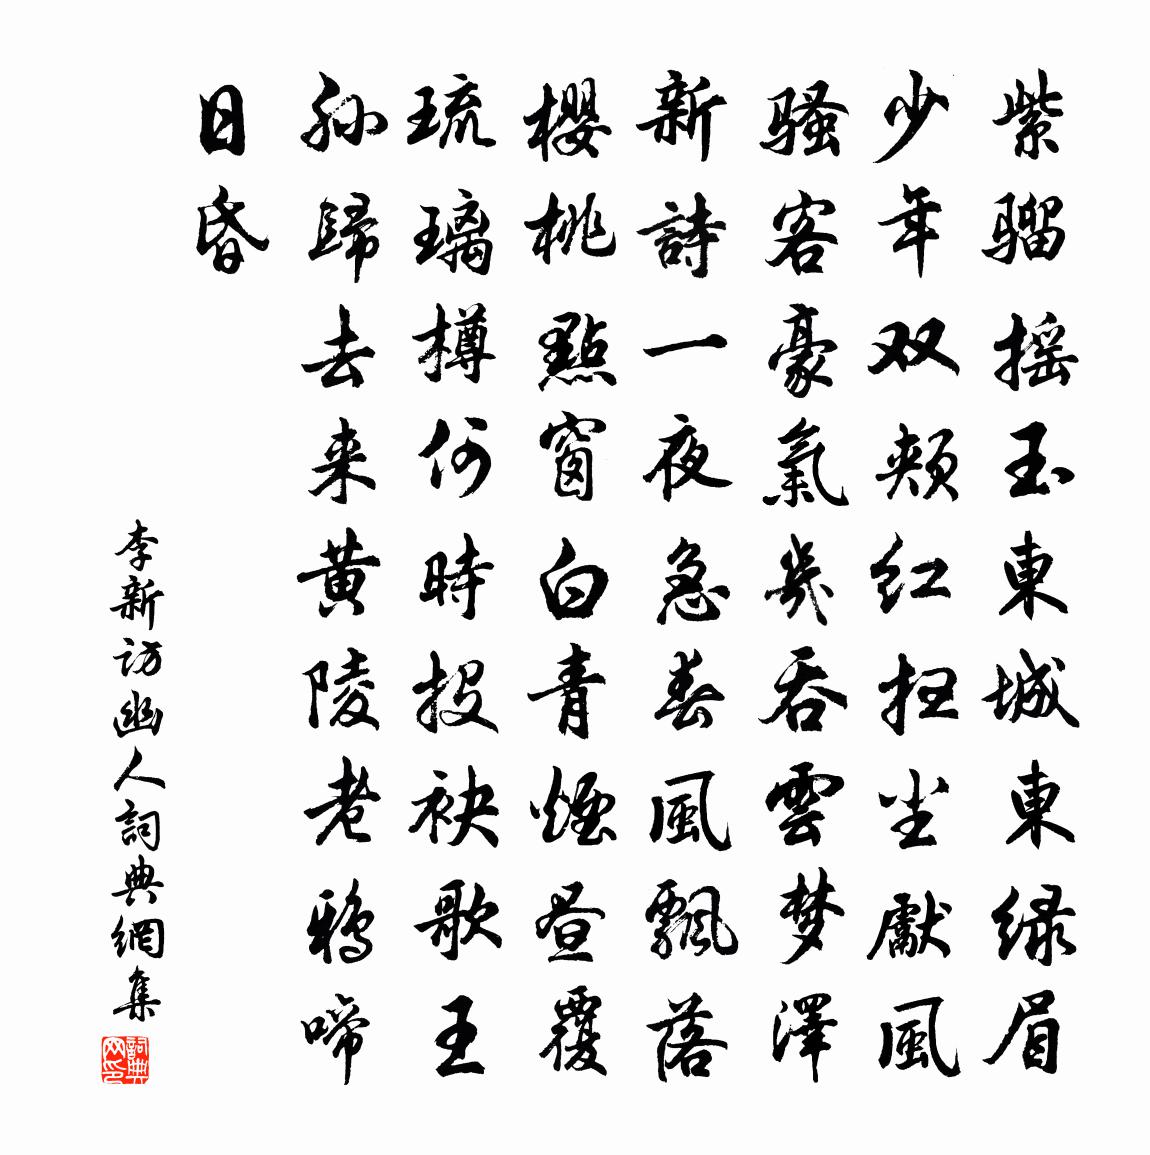 紫骝摇玉東城東绿眉
少年双颊红扫尘獻风
騷客豪氣幾吞雲梦澤
新詩一夜急春風飄落
櫻桃點窗白青煙昼覆
琉璃樽何時投袂歌王
孙歸去来黄陵老鸦啼
日昏
李新访幽人詞典網集
詞典网印